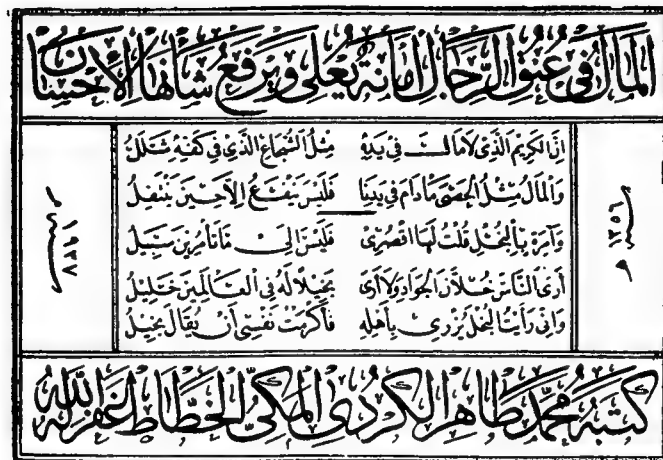 المَالُ فى عُنُقِ الرِّجَالِ أمَانَة يُعْلى وَيَرْفَعُ شَأنَهَا الإِحْسَان
إنَّ الكَرِيمَ الَّذِى لَا مَالَ فِى يَدِهِ مِثْلُ الشُّجَاعِ الَّذِى فِى كَفِّهِ شَلَلُ
وَالمَالُ مِثْلُ الحَصَى مَا دَامَ فِى يَدِنَا فَلَيْسَ يَنْفَعُ إلَّا حِينَ يَنْتَقِلُ
وَآمِرَةٍ بِالْبُخْلِ قُلْتُ لَهَا اقْصُرِى فَلَيْسَ إلَى مَا تَأْمُرِينَ سَبِيلُ
أرَى النَّاسَ خُلَّانَ الجَوَادِ وَلَا أرَى بَخِيلاً لَهُ فِى العَالَمِينَ خَلِيلُ
وَإنِّى رَأَيْتُ البُخْلَ يُزْرِى بِأَهْلِهِ فَأَكْرَمْتُ نَفْسِى أنْ يُقَالَ بَخِيلُ
سنة ١٣٥٦ هـ
سنة ١٩٣٧ م
كَتَبَهُ مُحَمَّد طَاهِر الكُرْدِى المَكِّىّ الخَطَّاط غَفَرَ اللهُ لَهُ